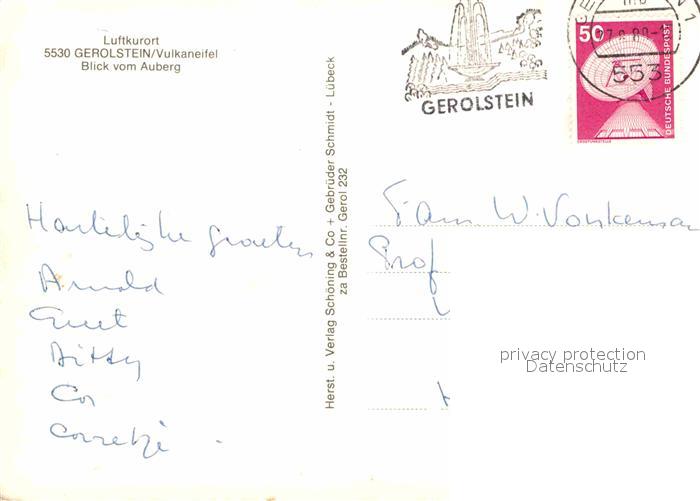 Luftkurort
5530 GEROLSTEIN/Vulkaneifel
Blick vom Auberg
GEROLSTEIN
553
50
DEUTSCHE BUNDESPOST
Herst. u. Verlag Schöning & Co + Gebrüder Schmidt - Lübeck
za Bestellnr. Gerol 232
Hartelijke groeten
Arnold
Cor
Fam W. Vonkeman
Prof
privacy protection
Datenschutz